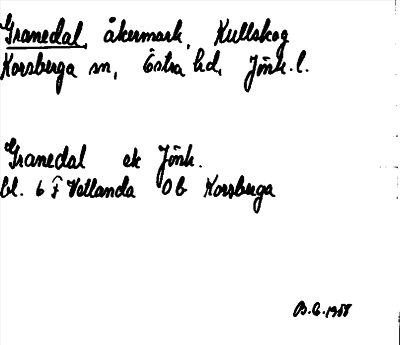 Granedal, åkermark, Kullskog
Korsberga sn, Östra hd, Jönk. l.
Granedal ek Jönk.
bl. 6 F Vetlanda Ob Korsberga
B.G. 1958